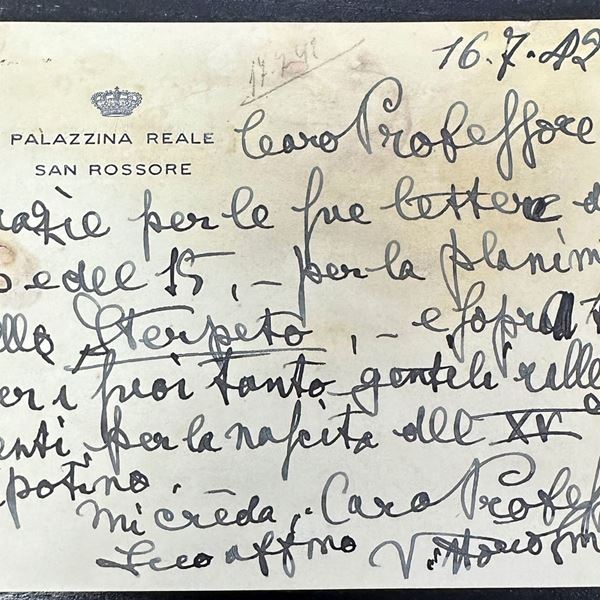 16.7.42
17.7.42
PALAZZINA REALE
SAN ROSSORE
Caro Professore
razie per le sue lettere d
6 e del 15, – per la planim
ello Sterpeto, – e sopratt
er i suoi tanto gentili ralle
enti, per la nascita del XV°
ipotino.
Mi crēda, Caro Profess
Suo affmo Vittorio Em